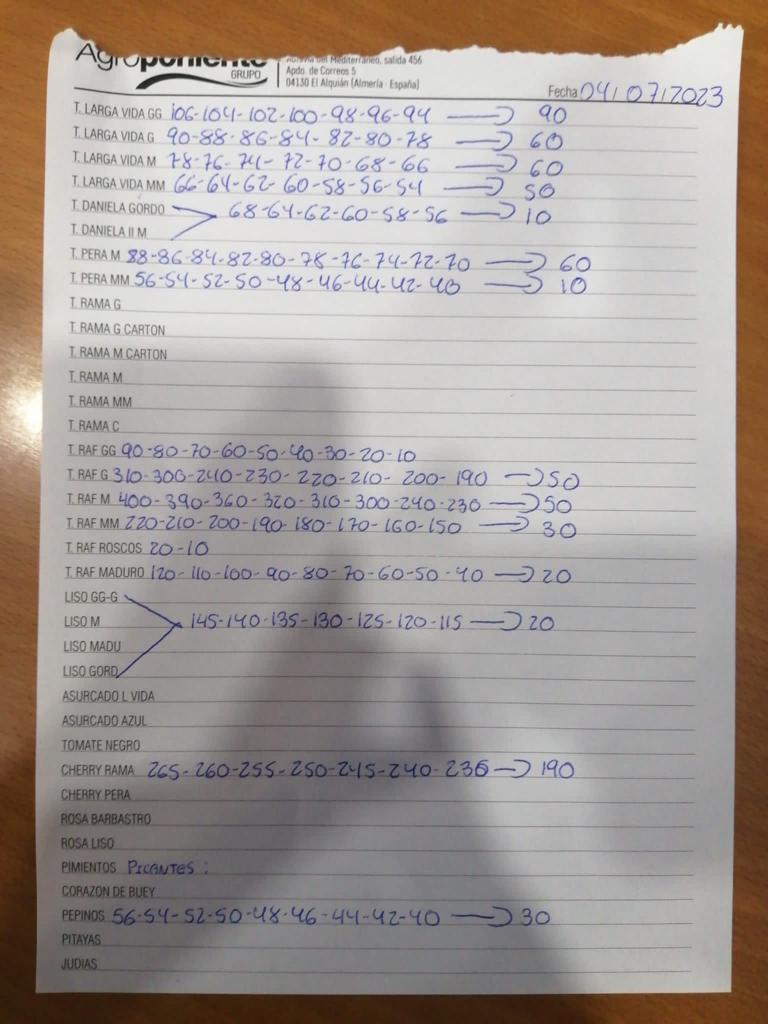 Agroponiente
GRUPO
Autovía del Mediterráneo, salida 456
Apdo. de Correos 5
04130 El Alquián (Almería - España)
Fecha 04/07/2023
T. LARGA VIDA GG 106-104-102-100-98-96-94 → 90
T. LARGA VIDA G 90-88-86-84-82-80-78 → 60
T. LARGA VIDA M 78-76-74-72-70-68-66 → 60
T. LARGA VIDA MM 66-64-62-60-58-56-54 → 50
T. DANIELA GORDO 68-64-62-60-58-56 → 10
T. DANIELA II M
T. PERA M 88-86-84-82-80-78-76-74-72-70 → 60
T. PERA MM 56-54-52-50-48-46-44-42-40 → 10
T. RAMA G
T. RAMA G CARTON
T. RAMA M CARTON
T. RAMA M
T. RAMA MM
T. RAMA C
T. RAF GG 90-80-70-60-50-40-30-20-10
T. RAF G 310-300-240-230-220-210-200-190 → 50
T. RAF M 400-390-360-320-310-300-240-230 → 50
T. RAF MM 220-210-200-190-180-170-160-150 → 30
T. RAF ROSCOS 20-10
T. RAF MADURO 120-110-100-90-80-70-60-50-40 → 20
LISO GG-G
LISO M 145-140-135-130-125-120-115 → 20
LISO MADU
LISO GORD
ASURCADO L VIDA
ASURCADO AZUL
TOMATE NEGRO
CHERRY RAMA 265-260-255-250-245-240-236 → 190
CHERRY PERA
ROSA BARBASTRO
ROSA LISO
PIMIENTOS PICANTES:
CORAZON DE BUEY
PEPINOS 56-54-52-50-48-46-44-42-40 → 30
PITAYAS
JUDIAS